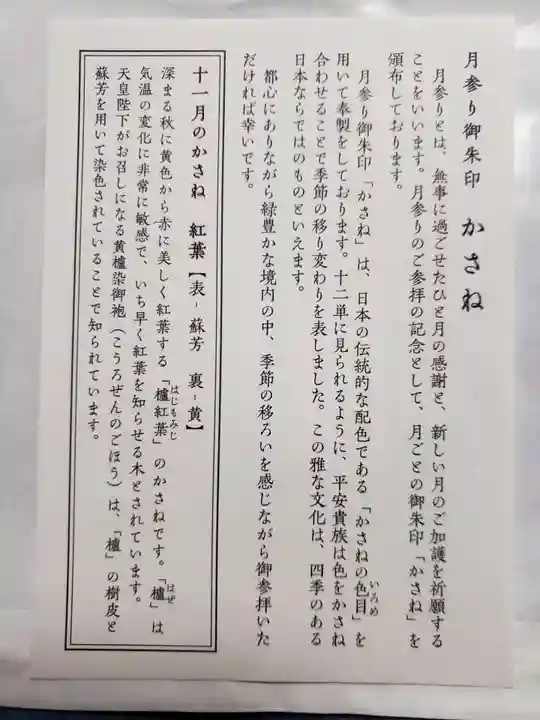 月参り御朱印 かさね
月参りとは、無事に過ごせたひと月の感謝と、新しい月のご加護を祈願する
ことをいいます。月参りのご参拝の記念として、月ごとの御朱印「かさね」を
頒布しております。
月参り御朱印「かさね」は、日本の伝統的な配色である「かさねの色目」を
いろめ
用いて奉製をしております。十二単に見られるように、平安貴族は色をかさね
合わせることで季節の移り変わりを表しました。この雅な文化は、四季のある
日本ならではのものといえます。
都心にありながら緑豊かな境内の中、季節の移ろいを感じながら御参拝いた
だければ幸いです。
十一月のかさね 紅葉【表-蘇芳 裏-黄】
深まる秋に黄色から赤に美しく紅葉する「櫨紅葉」のかさねです。「櫨」は
はじもみじ
はぜ
気温の変化に非常に敏感で、いち早く紅葉を知らせる木とされています。
天皇陛下がお召しになる黄櫨染御袍（こうろぜんのごほう）は、「櫨」の樹皮と
蘇芳を用いて染色されていることで知られています。